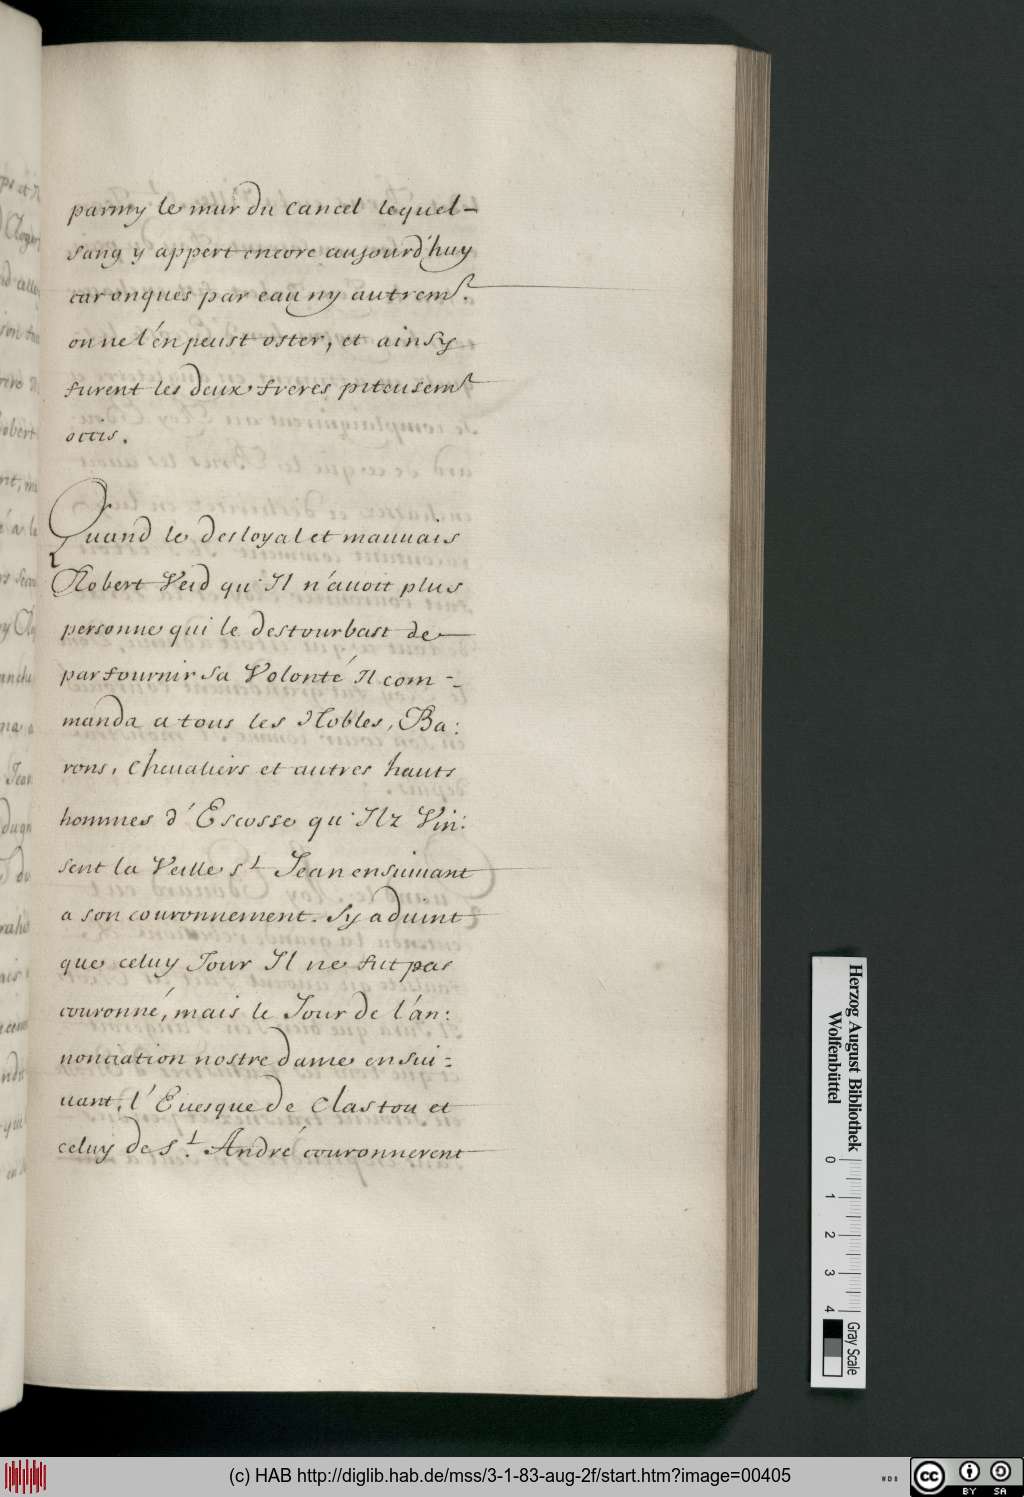 parmy le mur du cancel lequel-
sang y appert encore aujourd'huy
car onques par eau ny autremt.
on ne l'en peust oster, et ainsy
furent les deux freres piteusemt
occis.
Quand le desloyal et mauuais
Robert Veid qu'Il n'auoit plus
personne qui le destourbast de
parfournir sa Volonté Il com-
manda a tous les Nobles, Ba:
rons, Cheualiers et autres hauts
hommes d'Escosse qu'Ilz Vin:
sent la Veille st Jean ensuiuant
a son couronnement. Sy aduint
que celuy Jour Il ne fut pas
couronné, mais le Jour de l'an:
nonciation nostre dame ensui:
uant, l'Euesque de Clastou et
celuy de st. André couronnerent
Herzog August Bibliothek
Wolfenbüttel
0 1 2 3 4
Gray Scale
(c) HAB http://diglib.hab.de/mss/3-1-83-aug-2f/start.htm?image=00405
cc BY SA